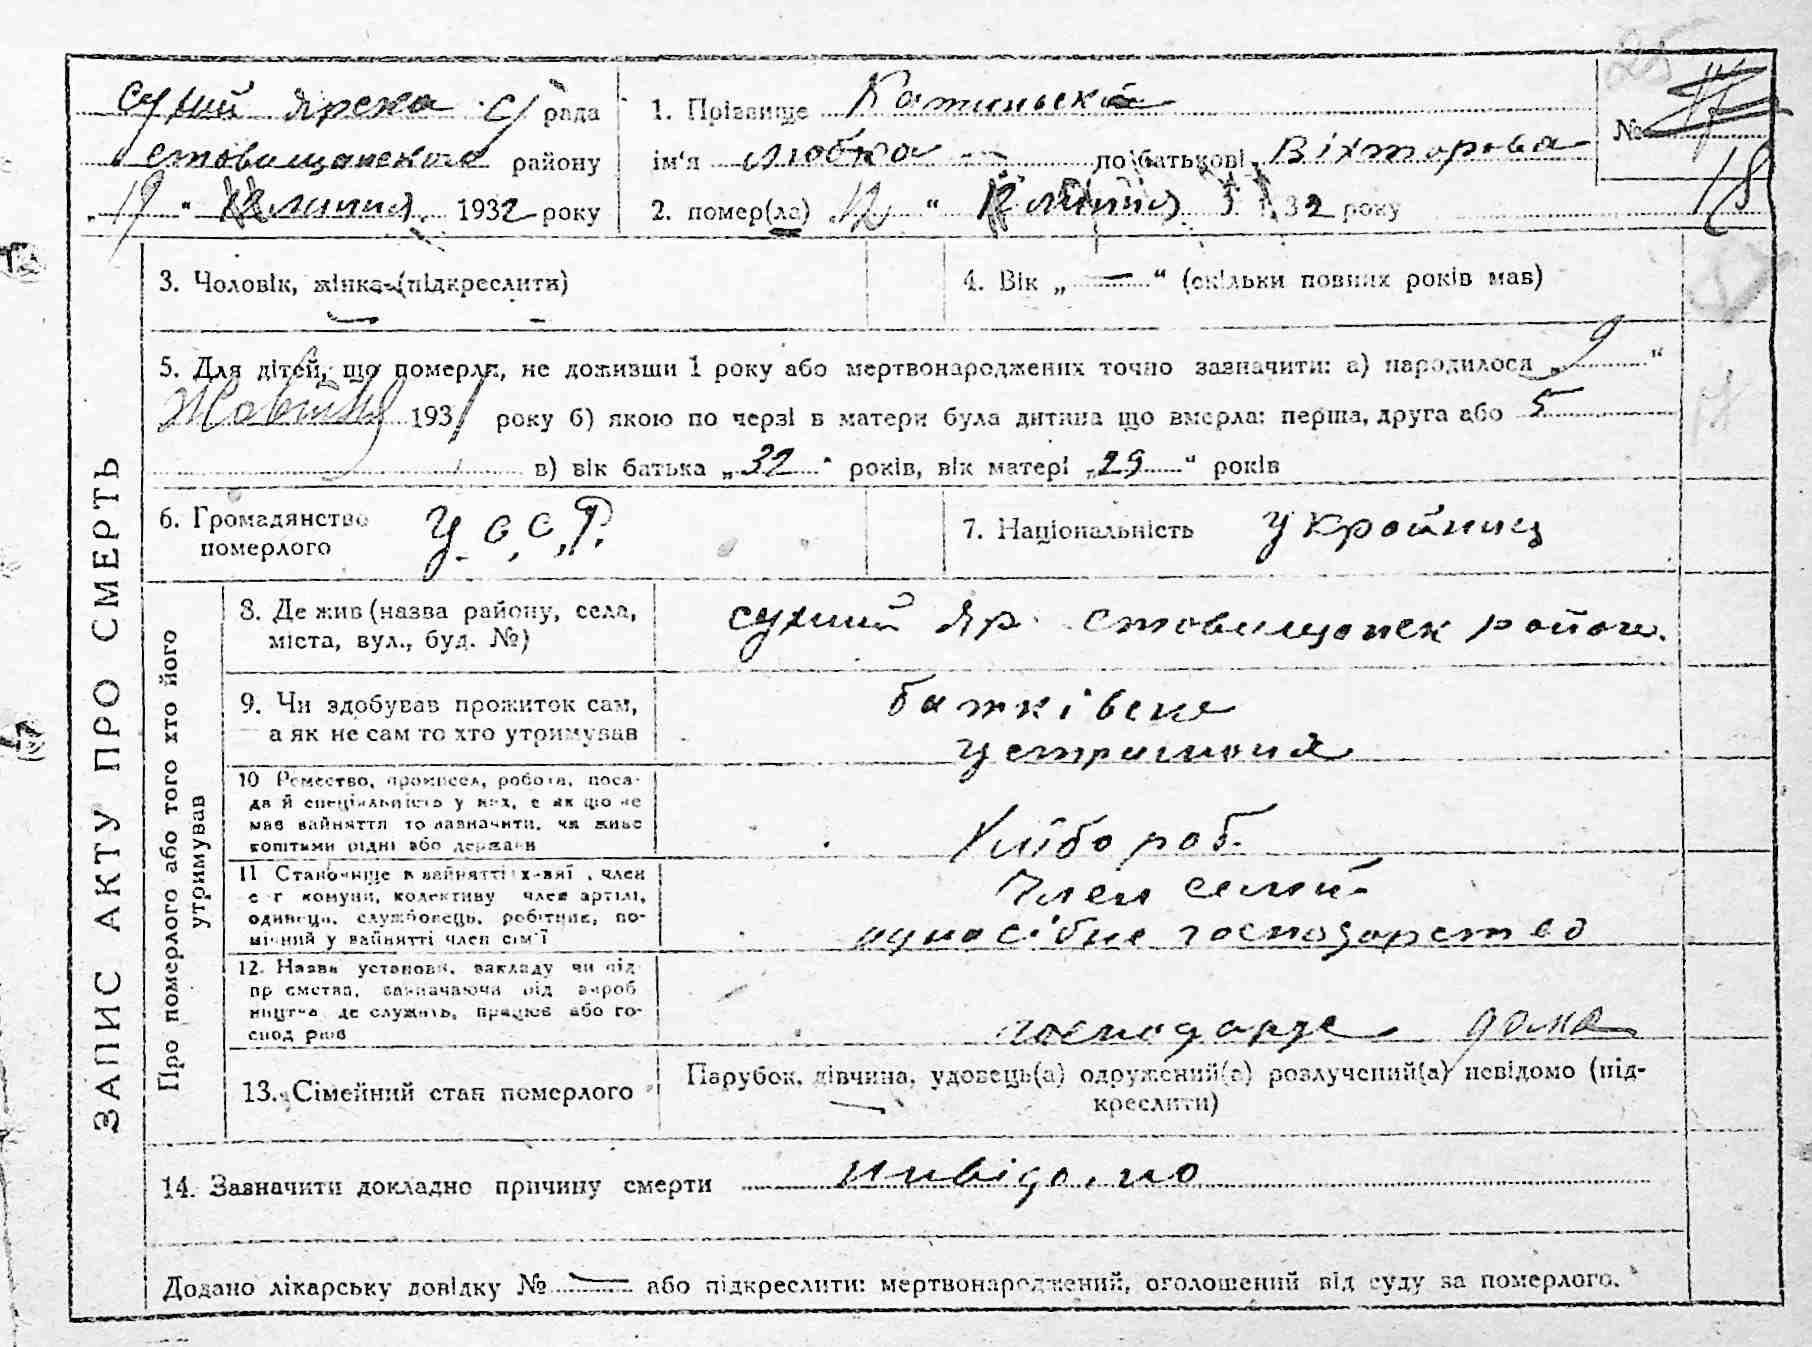 ЗАПИС АКТУ ПРО СМЕРТЬ
сухий ярска с/рада
ставищанского району
„19“ липня 1932 року
1. Прізвище
ім'я Любка по батькові Вікторова
2. помер(ла) 12 “ липня 1932 року
№ 18
3. Чоловік, жінка (підкреслити)
4. Вік „—“ (скільки повних років мав)
5. Для дітей, що померли, не доживши 1 року або мертвонароджених точно зазначити: а) народилося „9“
Жовтня 1931 року б) якою по черзі в матери була дитина що вмерла: перша, друга або 5
в) вік батька „32“ років, вік матері „29“ років
6. Громадянство померлого У.С.С.Р.
7. Національність Украйниц
Про померлого або того хто його утримував
8. Де жив (назва району, села,
міста, вул., буд. №)
сухий Яр ставищанск район.
9. Чи здобував прожиток сам,
а як не сам то хто утримував
батківске
устриманя
10 Ремество, промисел, робота, поса-
да й спеціяльність у них, а як що не
мав зайняття то зазначити, чи живе
коштами рідні або держави
Хлібороб.
11 Становище в зайнятті: х-зяї , член
с-г комуни, колективу член артілі,
одинець, службовець, робітник, по-
мічний у зайнятті член сім'ї
Член семьи
односібне господарство
12. Назва установи, закладу чи під-
пр ємства, зазначаючи рід вироб
ництва де служить, працює або го-
спод рює
господарзе дома
13. Сімейний стан померлого
Парубок, дівчина, удовець(а) одружений(а) розлучений(а) невідомо (під-
креслити)
14. Зазначити докладно причину смерти нивідомо
Додано лікарську довідку № — або підкреслити: мертвонароджений, оголошений від суду за померлого.